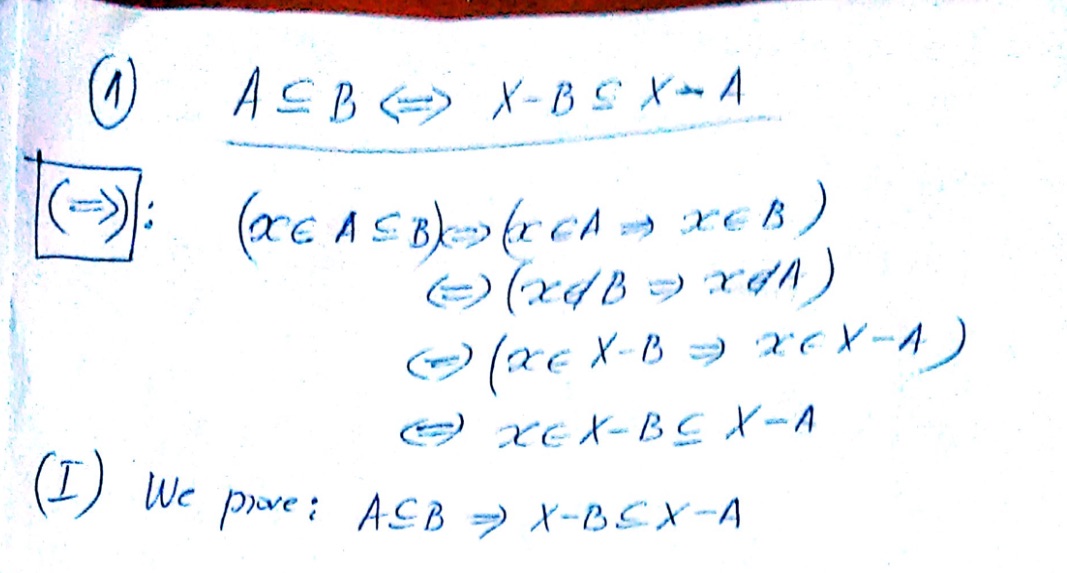 ① A ⊆ B ⇔ X-B ⊆ X-A
(⇒): (x ∈ A ⊆ B) ⇔ (x ∈ A ⇒ x ∈ B)
⇔ (x ∉ B ⇒ x ∉ A)
⇔ (x ∈ X-B ⇒ x ∈ X-A)
⇔ x ∈ X-B ⊆ X-A
(I) We prove: A ⊆ B ⇒ X-B ⊆ X-A